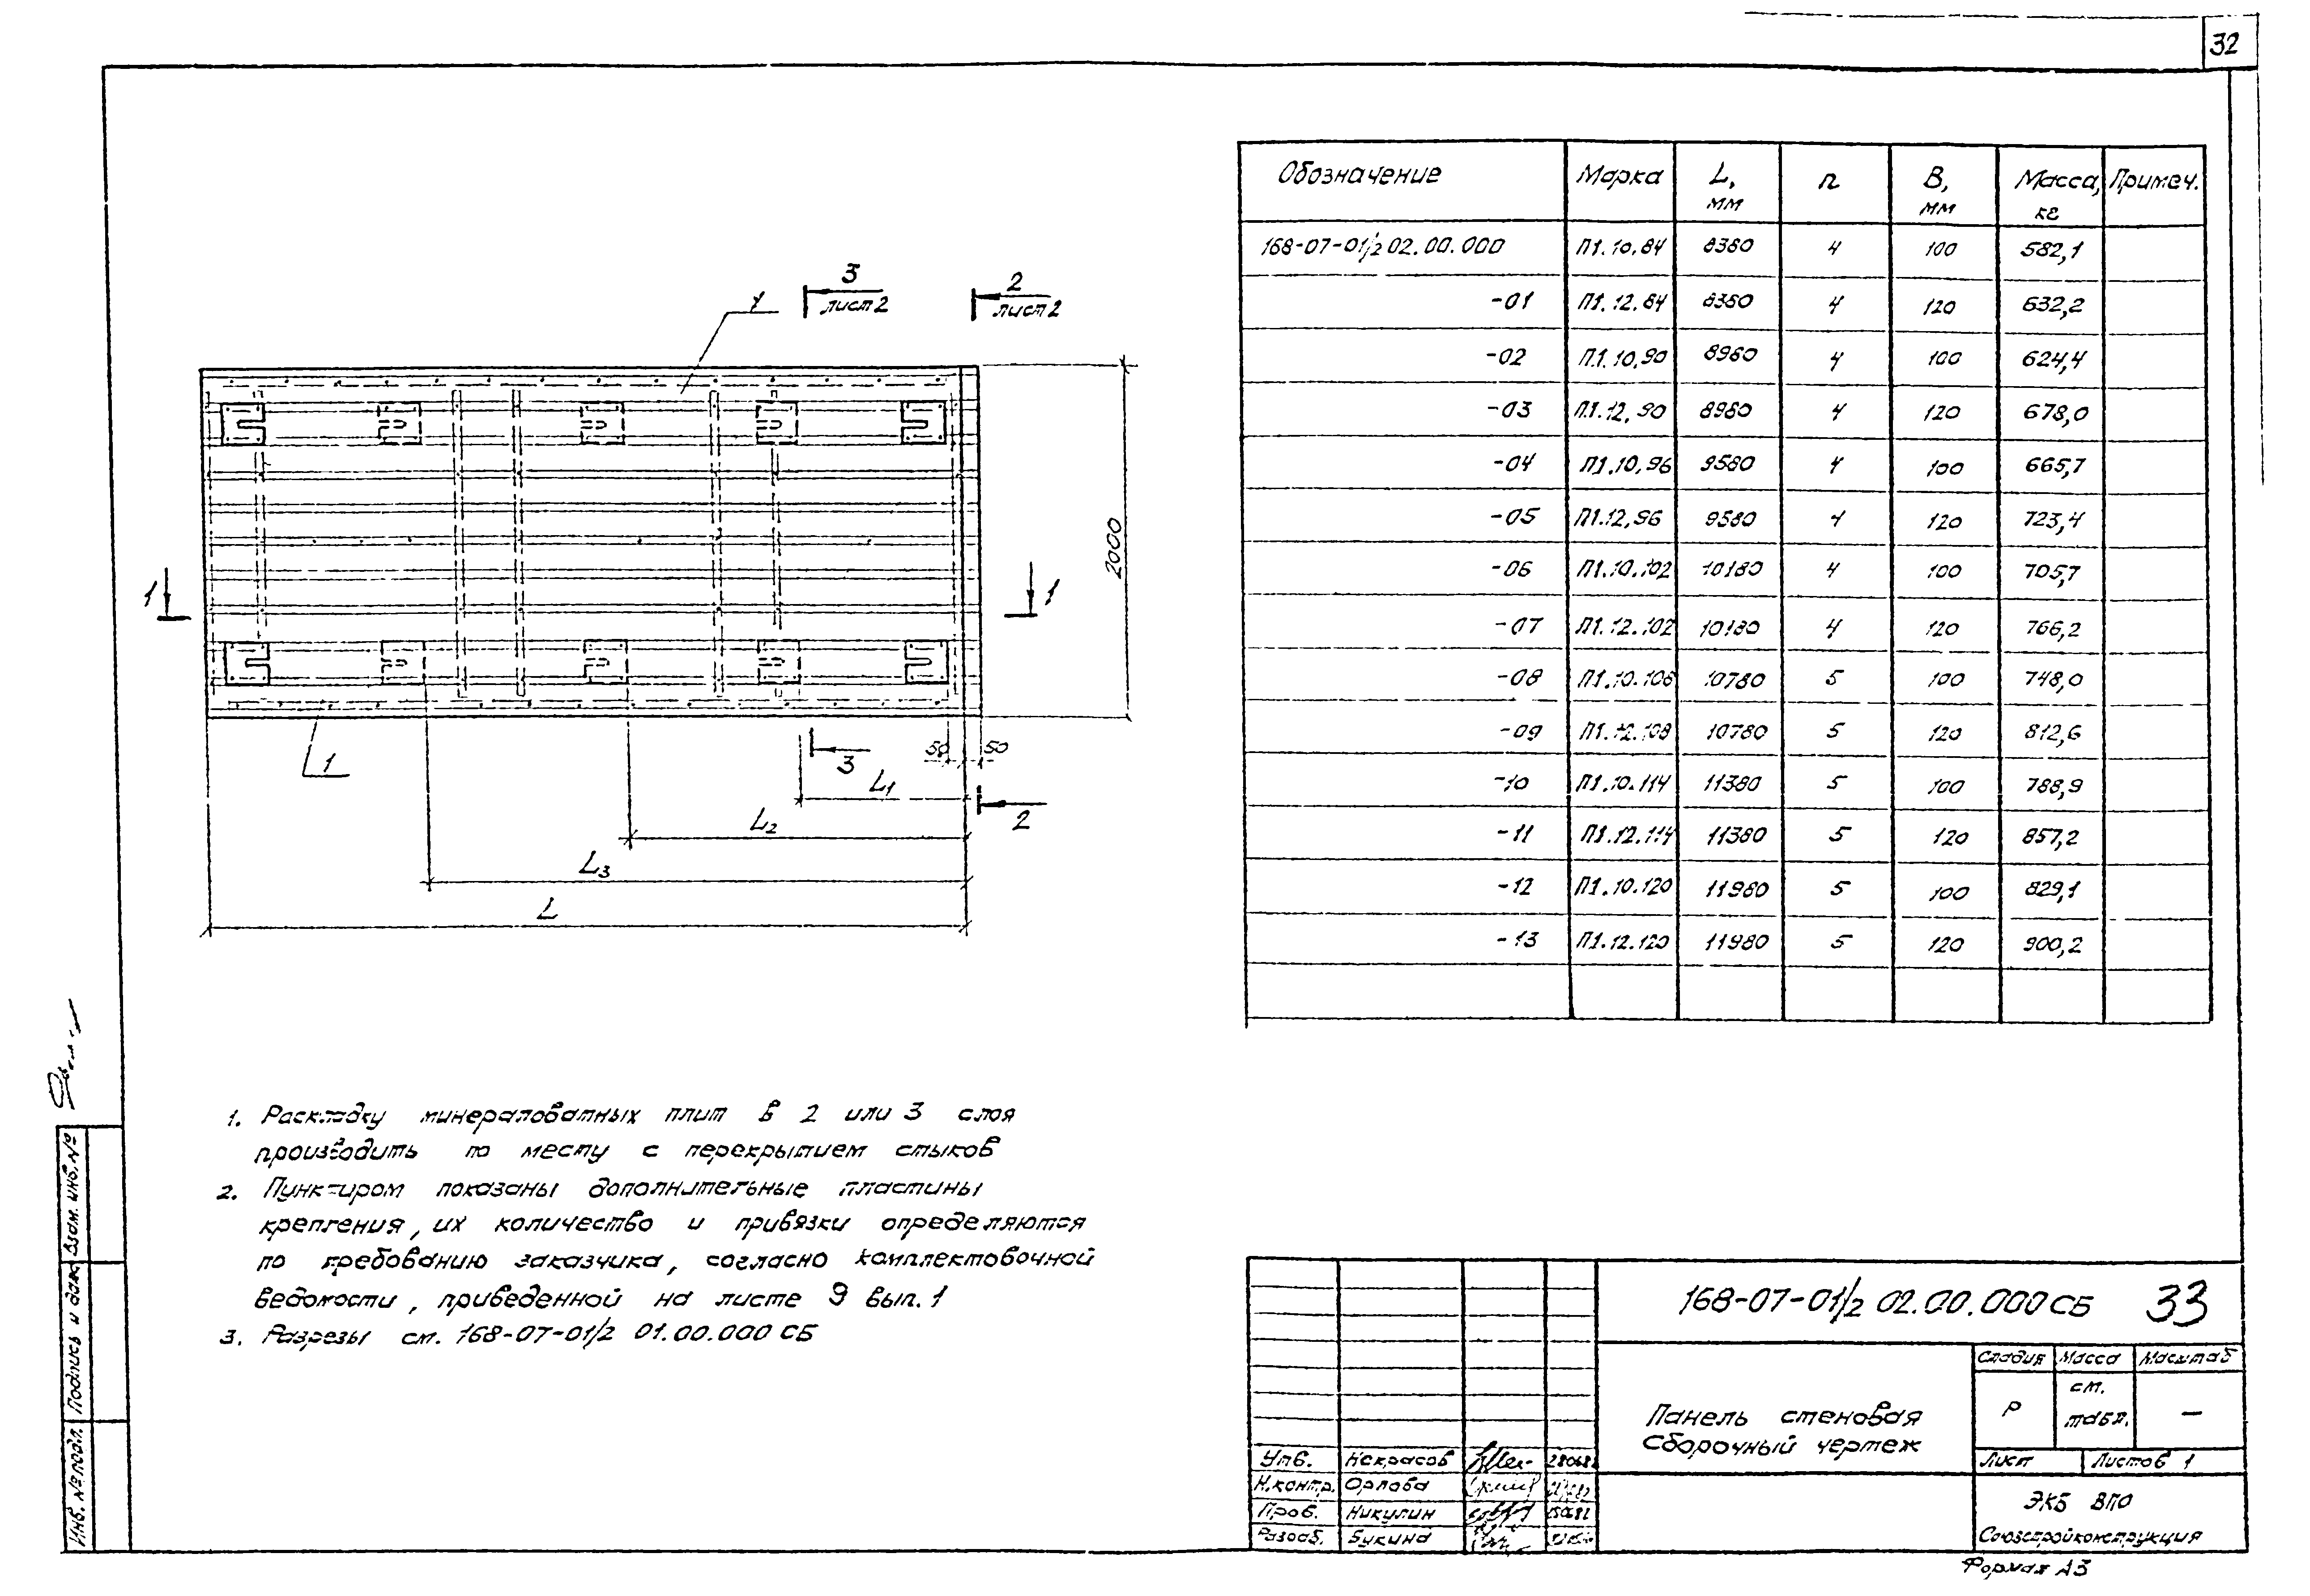 32
Обозначение Марка L, мм n В, мм Масса, кг Примеч.
168-07-01/2 02.00.000 П1.10.84 8380 4 100 582,1
-01 П1.12.84 8380 4 120 632,2
-02 П.1.10,90 8980 4 100 624,4
-03 П.1.12,90 8980 4 120 678,0
-04 П1.10,96 9580 4 100 665,7
-05 П1.12,96 9580 4 120 723,4
-06 П1.10.102 10180 4 100 705,7
-07 П1.12.102 10180 4 120 766,2
-08 П1.10.108 10780 5 100 748,0
-09 П1.12.108 10780 5 120 812,6
-10 П1.10.114 11380 5 100 788,9
-11 П1.12.114 11380 5 120 857,2
-12 П1.10.120 11980 5 100 829,1
-13 П1.12.120 11980 5 120 900,2
1
3
лист 2
2
лист 2
2000
1
1
1
3
50
50
L1
2
L2
L3
L
1. Раскладку минераловатных плит в 2 или 3 слоя
производить по месту с перекрытием стыков
2. Пунктиром показаны дополнительные пластины
крепления, их количество и привязки определяются
по требованию заказчика, согласно комплектовочной
ведомости, приведенной на листе 9 вып. 1
3. Разрезы см. 168-07-01/2 01.00.000 СБ
Взам. инв. №
Подпись и дата
Инв. № подл.
168-07-01/2 02.00.000 СБ 33
Панель стеновая
Сборочный чертеж
Стадия Масса Масштаб
Р см. табл. —
Лист Листов 1
ЭКБ ВПО
Союзстройконструкция
Утв. Некрасов
Н.контр. Орлова
Пров. Никулин
Разраб. Букина
Формат А3